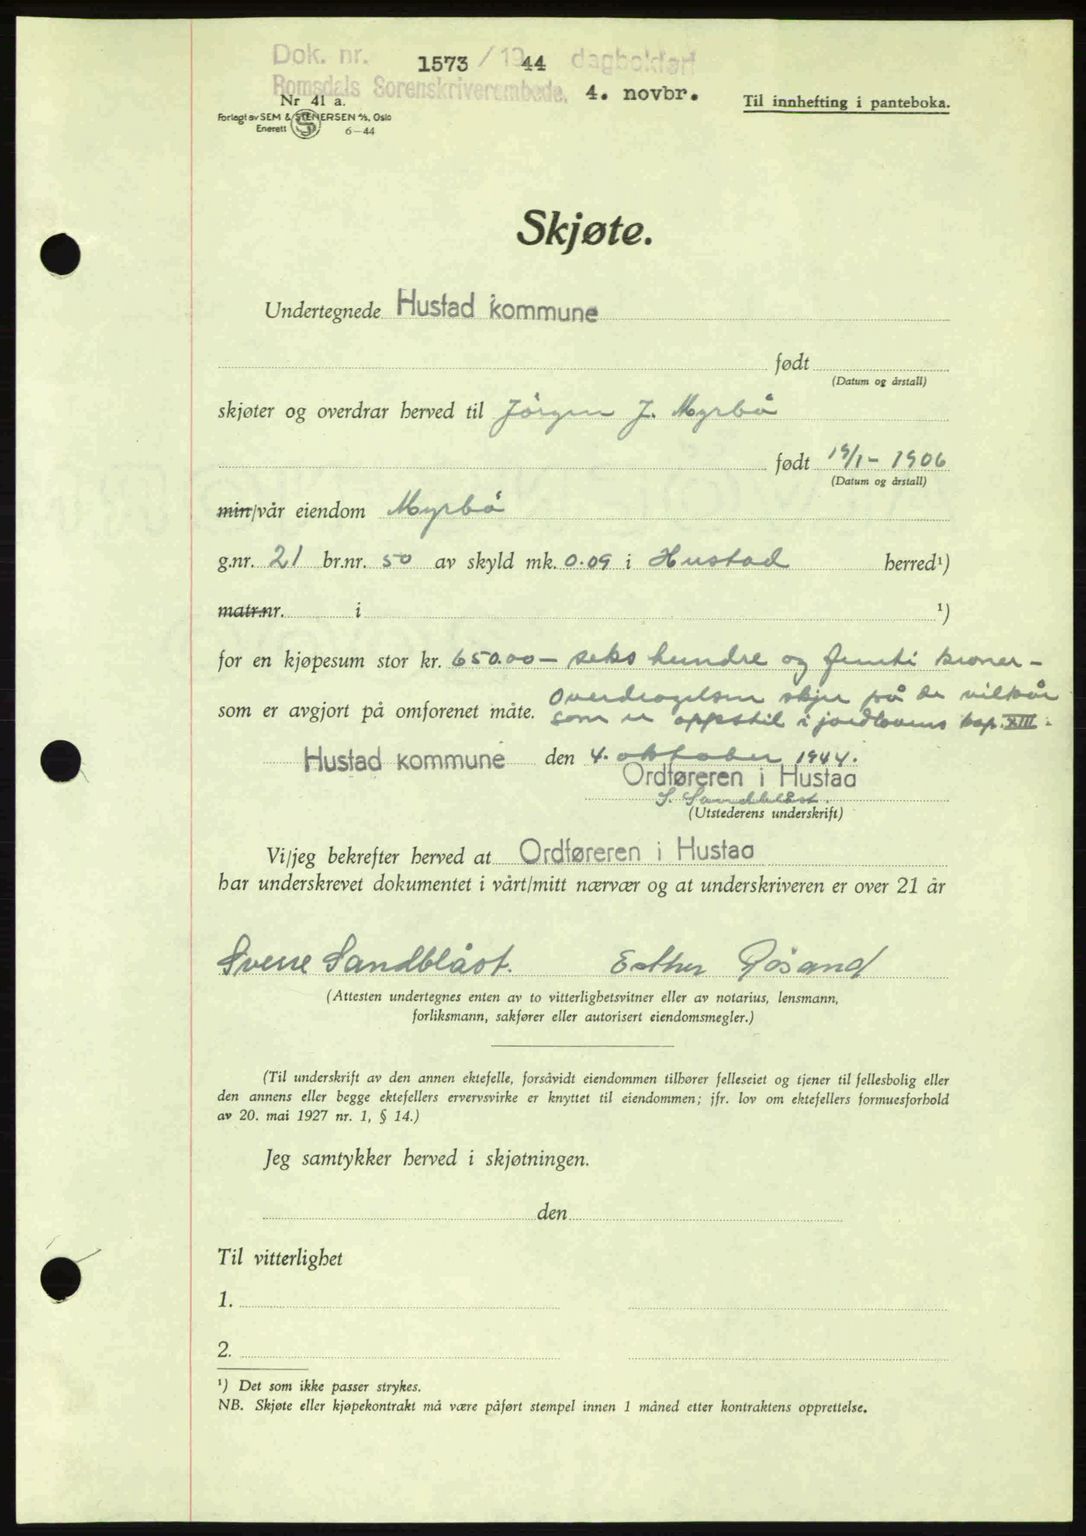 Dok. nr. 1573 / 1944 dagbokført
Romsdals Sorenskriverembede, 4. novbr.
Nr 41 a.
Forlagt av SEM & STENERSEN A/S, Oslo
Enerett 6-44
Til innhefting i panteboka.
Skjøte.
Undertegnede Hustad kommune
født
(Datum og årstall)
skjøter og overdrar herved til Jörgen J. Myrbö
født 19/1- 1906
(Datum og årstall)
min/vår eiendom Myrbö
g.nr. 21 br.nr. 50 av skyld mk. 0.09 i Hustad herred¹)
matr.nr. i ¹)
for en kjøpesum stor kr. 650.00 - seks hundre og femti kroner -
som er avgjort på omforenet måte. Overdragelsen skjer på de vilkår
som er oppstil i jordlovens kap. XIII.
Hustad kommune den 4. oktober 1944.
Ordføreren i Hustad
S.
(Utstederens underskrift)
Vi/jeg bekrefter herved at Ordføreren i Hustad
har underskrevet dokumentet i vårt/mitt nærvær og at underskriveren er over 21 år
Sverre Sandblåst. Esther Rösand
(Attesten undertegnes enten av to vitterlighetsvitner eller av notarius, lensmann,
forliksmann, sakfører eller autorisert eiendomsmegler.)
(Til underskrift av den annen ektefelle, forsåvidt eiendommen tilhører felleseiet og tjener til fellesbolig eller
den annens eller begge ektefellers ervervsvirke er knyttet til eiendommen; jfr. lov om ektefellers formuesforhold
av 20. mai 1927 nr. 1, § 14.)
Jeg samtykker herved i skjøtningen.
den
Til vitterlighet
1.
2.
¹) Det som ikke passer strykes.
NB. Skjøte eller kjøpekontrakt må være påført stempel innen 1 måned etter kontraktens opprettelse.